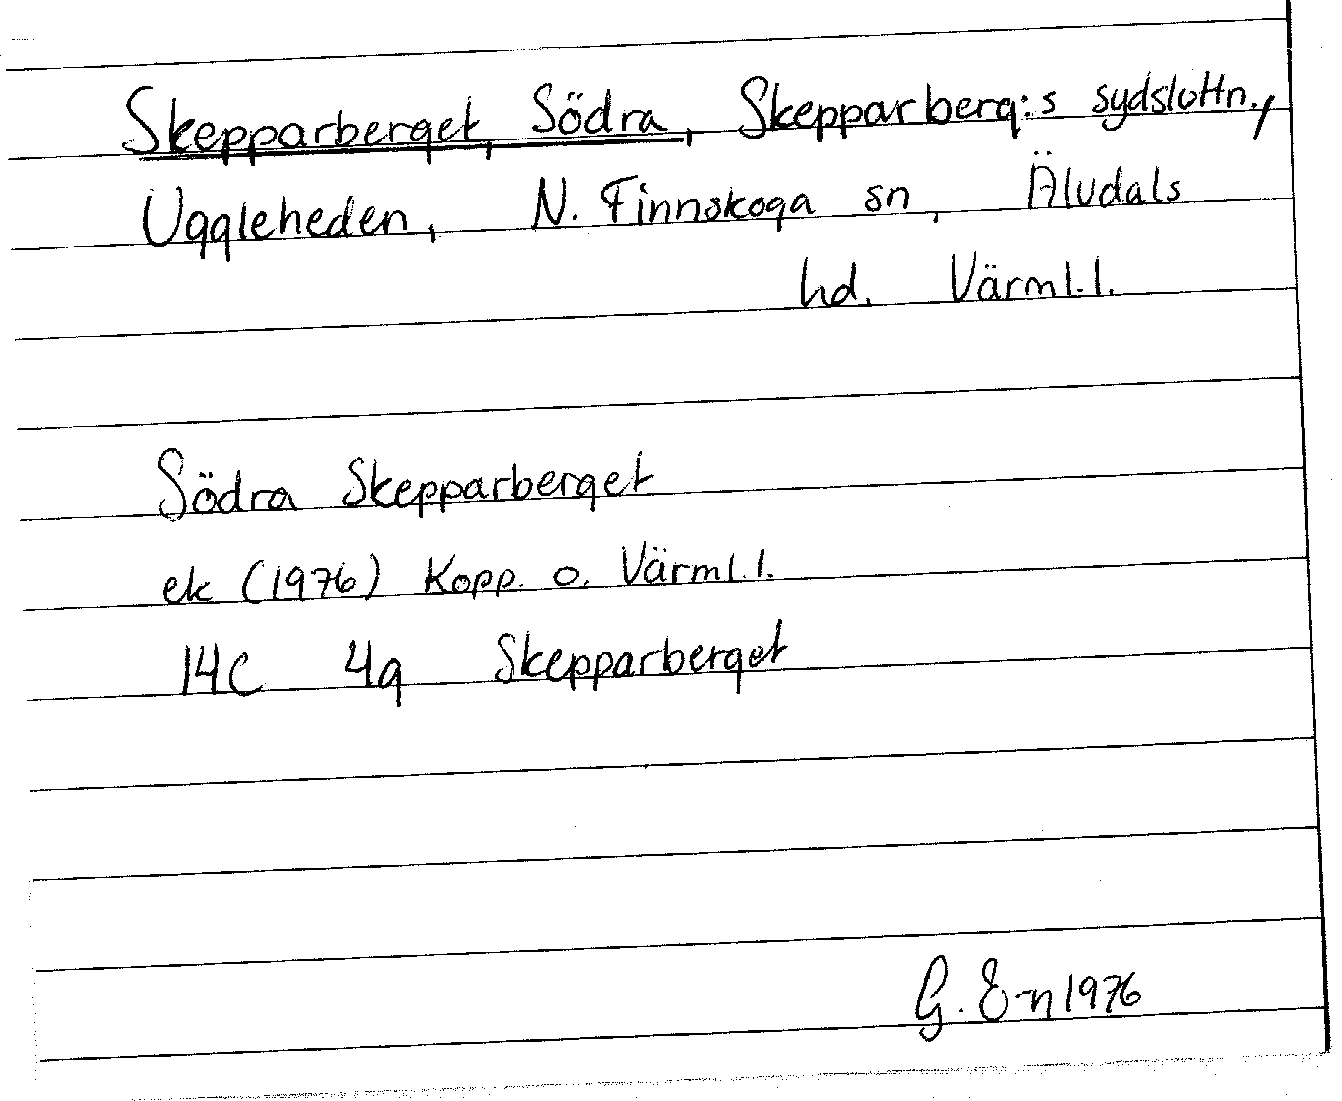 Skepparberget, Södra, Skepparberg:s sydslottn.,
Uggleheden, N. Finnskoga sn, Älvdals
hd. Värml.l.
Södra Skepparberget
ek (1976) Kopp. o. Värml.l.
14C 4g Skepparberget
G. E-n 1976